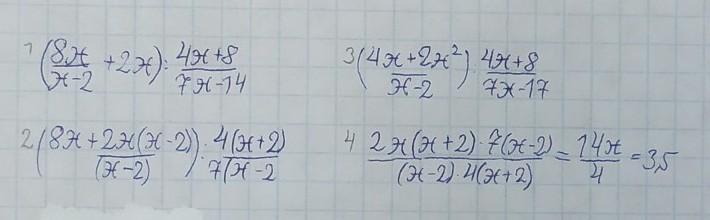 1 (8x/(x-2) + 2x) : (4x+8)/(7x-14)
2 (8x+2x(x-2))/(x-2) : 4(x+2)/7(x-2
3 (4x+2x²)/(x-2) : (4x+8)/(7x-17)
4 2x(x+2)·7(x-2)/(x-2)·4(x+2) = 14x/4 = 3,5